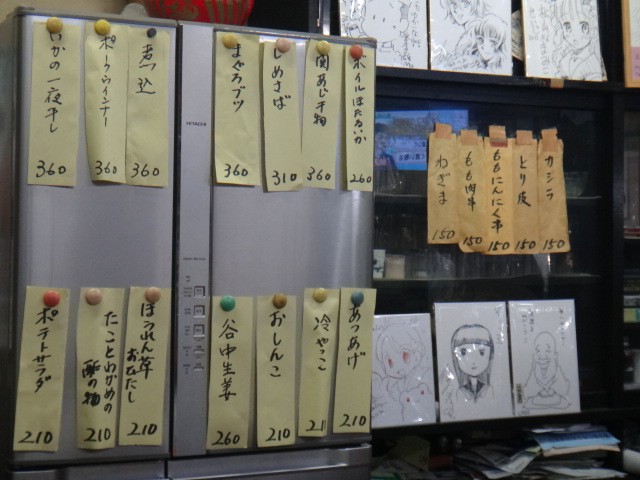 いかの一夜干し
360
ポークウインナー
360
煮込
360
まぐろブツ
360
しめさば
310
関あじ干物
360
ボイルほたるいか
260
HITACHI
ポテトサラダ
210
たことわかめの
酢の物
210
ほうれん草
おひたし
210
谷中生姜
260
おしんこ
210
冷やっこ
210
あつあげ
210
ねぎま
150
もも肉串
150
ももにんにく串
150
とり皮
150
カシラ
150